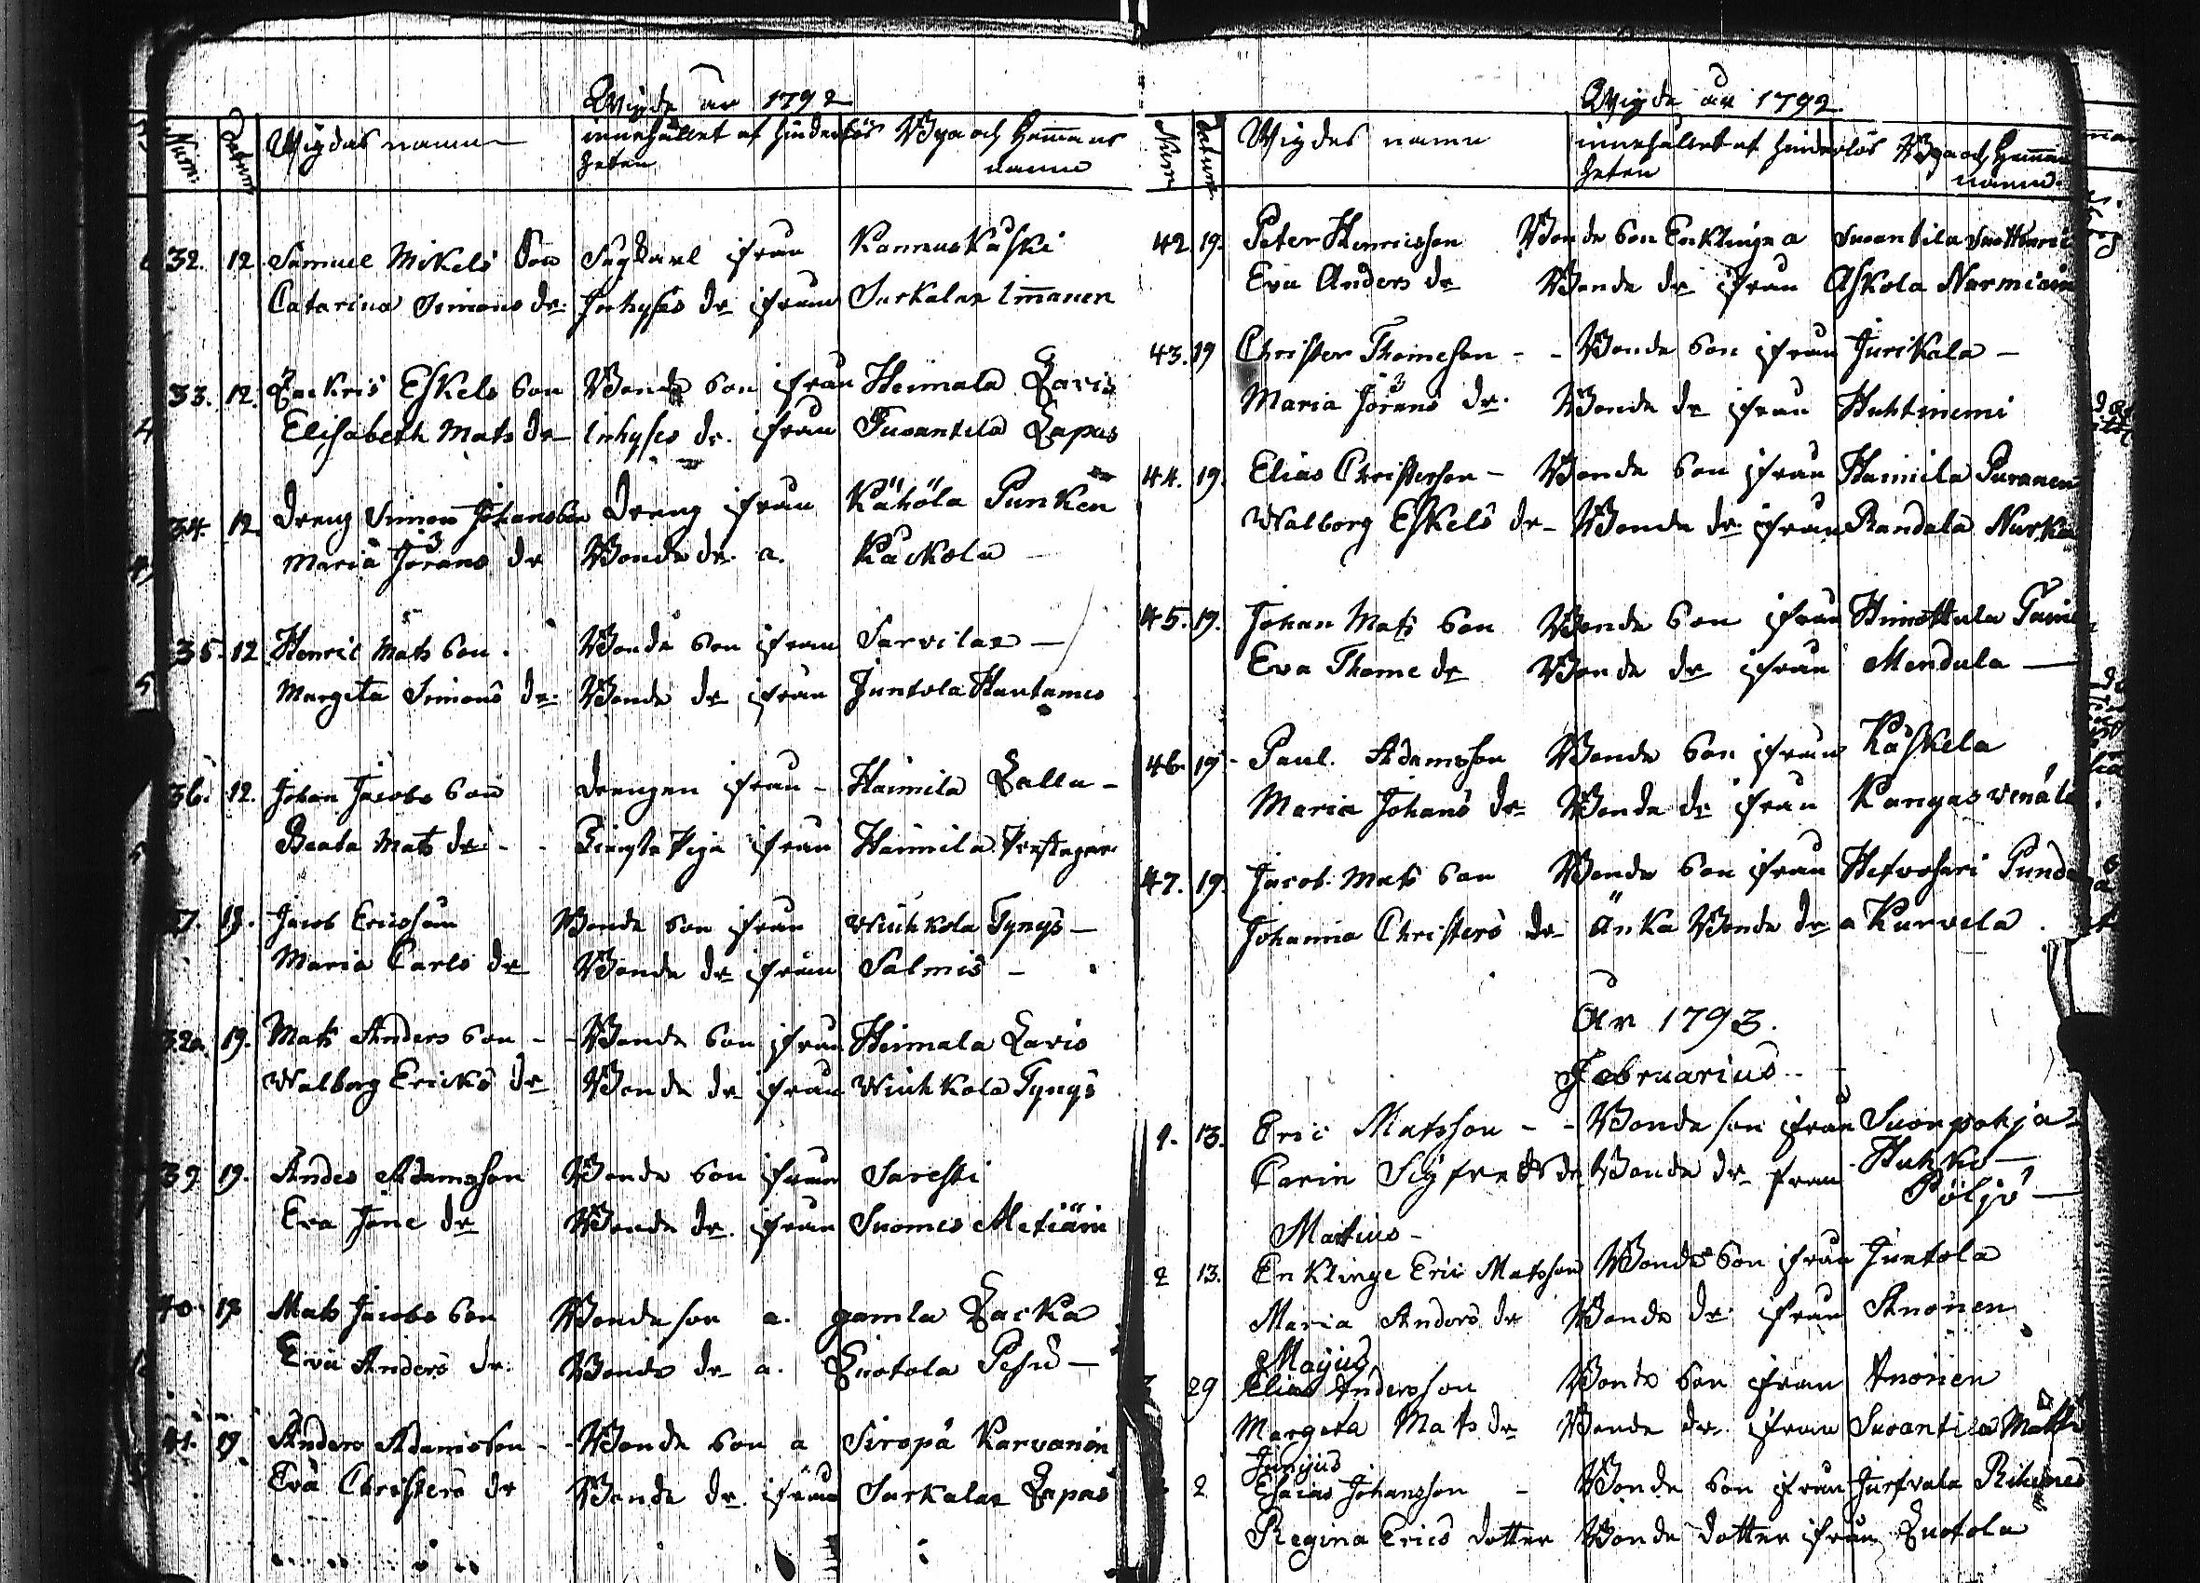 Wigde år 1792
Num:
Datum
Wigdas namn
innehållet af hinderlös
heten
Bya och Hemans
namn
32. 12 Samuel Mikels Son Sugkarl ifrån Kannuskåski
Catarina Simons dr. Inhyses dr ifrån Surkalax Immanen
33. 12. Zackris Eskels Son Bonde Son ifrån Heimala Lavis
Elisabeth Mats dr Inhyses dr. ifrån Suoantila Lapas
34. 12 Dreng Simon Johansson Dreng ifrån Kähölä Punken
Maria Jörans dr Bonde dr. a. Kackola
35. 12 Henric Mats Son Bonde Son ifrån Sarvilax
Margeta Simons dr. Bonde dr ifrån Juntola Hautames
36. 12. Johan Jacobs Son drengen ifrån Haimila Lalla
Beata Mats dr Piga ifrån Haimila
37. 19. Jacob Ericsson Bonde Son ifrån Wiuhkola Tynys
Maria Carls dr Bonde dr ifrån Salmis
19. Mats Anders Son Bonde Son ifrån Heimala Lavis
Walborg Ericks dr Bonde dr ifrån Wiuhkola Tynys
39 19. Andes Adamsson Bonde Son ifrån Saresti
Eva Jöne dr Bonde dr. ifrån Suomes Metiäin
40 19 Mats Jacobs Son Bonde son a. gamla Lacka
Eva Anders dr. Bonde dr a. Luotola Pesu
41. 19 Anders Adamsson Bonde Son a Siropå Karvanen
Eva Christers dr Bonde dr. ifrån Surkalax Lapas
Wigde år 1792.
Num
Datum
Wigdes namn
innehållet af hinderlös
heten
Bya och Heman
namn.
42 19. Peter Henricsson Bonde Son Enklinge a Suoantila
Eva Anders dr Bonde dr ifrån Askola Nermiain
43. 19 Christer Thomeson Bonde Son ifrån Jurikala
Maria Jörans dr. Bonde dr ifrån Huhtniemi
44. 19. Elias Christersson Bonde Son ifrån Haimila Puranen
Walborg Eskels dr Bonde dr. ifrån Randala Nurka
45. 19. Johan Mats Son Bonde Son ifrån Himottula
Eva Thome dr Bonde dr ifrån Mendula
46. 19 Paul. Adamsson Bonde Son ifrån Kåskela
Maria Johans dr Bonde dr ifrån Kangasvenäla
47. 19. Jacob Mats Son Bonde Son ifrån Hetvosari Pund
Johanna Christers dr Änka Bonde dr a Kurvela
År 1793.
Februarius
1. 13. Eric Matsson Bonde son ifrån Suonpohja
Carin Sigfreds dr Bonde dr från Huhko
Pöljö
Martius
2 13. Enklinge Eric Matsson Bonde Son ifrån Juntola
Maria Anders dr Bonde dr. ifrån Anonen
Majus
29 Elias Andersson Bonde Son ifrån Anonen
Margeta Mats dr Bonde dr. ifrån Suoantila Matti
Junijus
2 Esaias Johansson Bonde Son ifrån Jurvala
Regina Erics dotter Bonde dotter ifrån Luotola